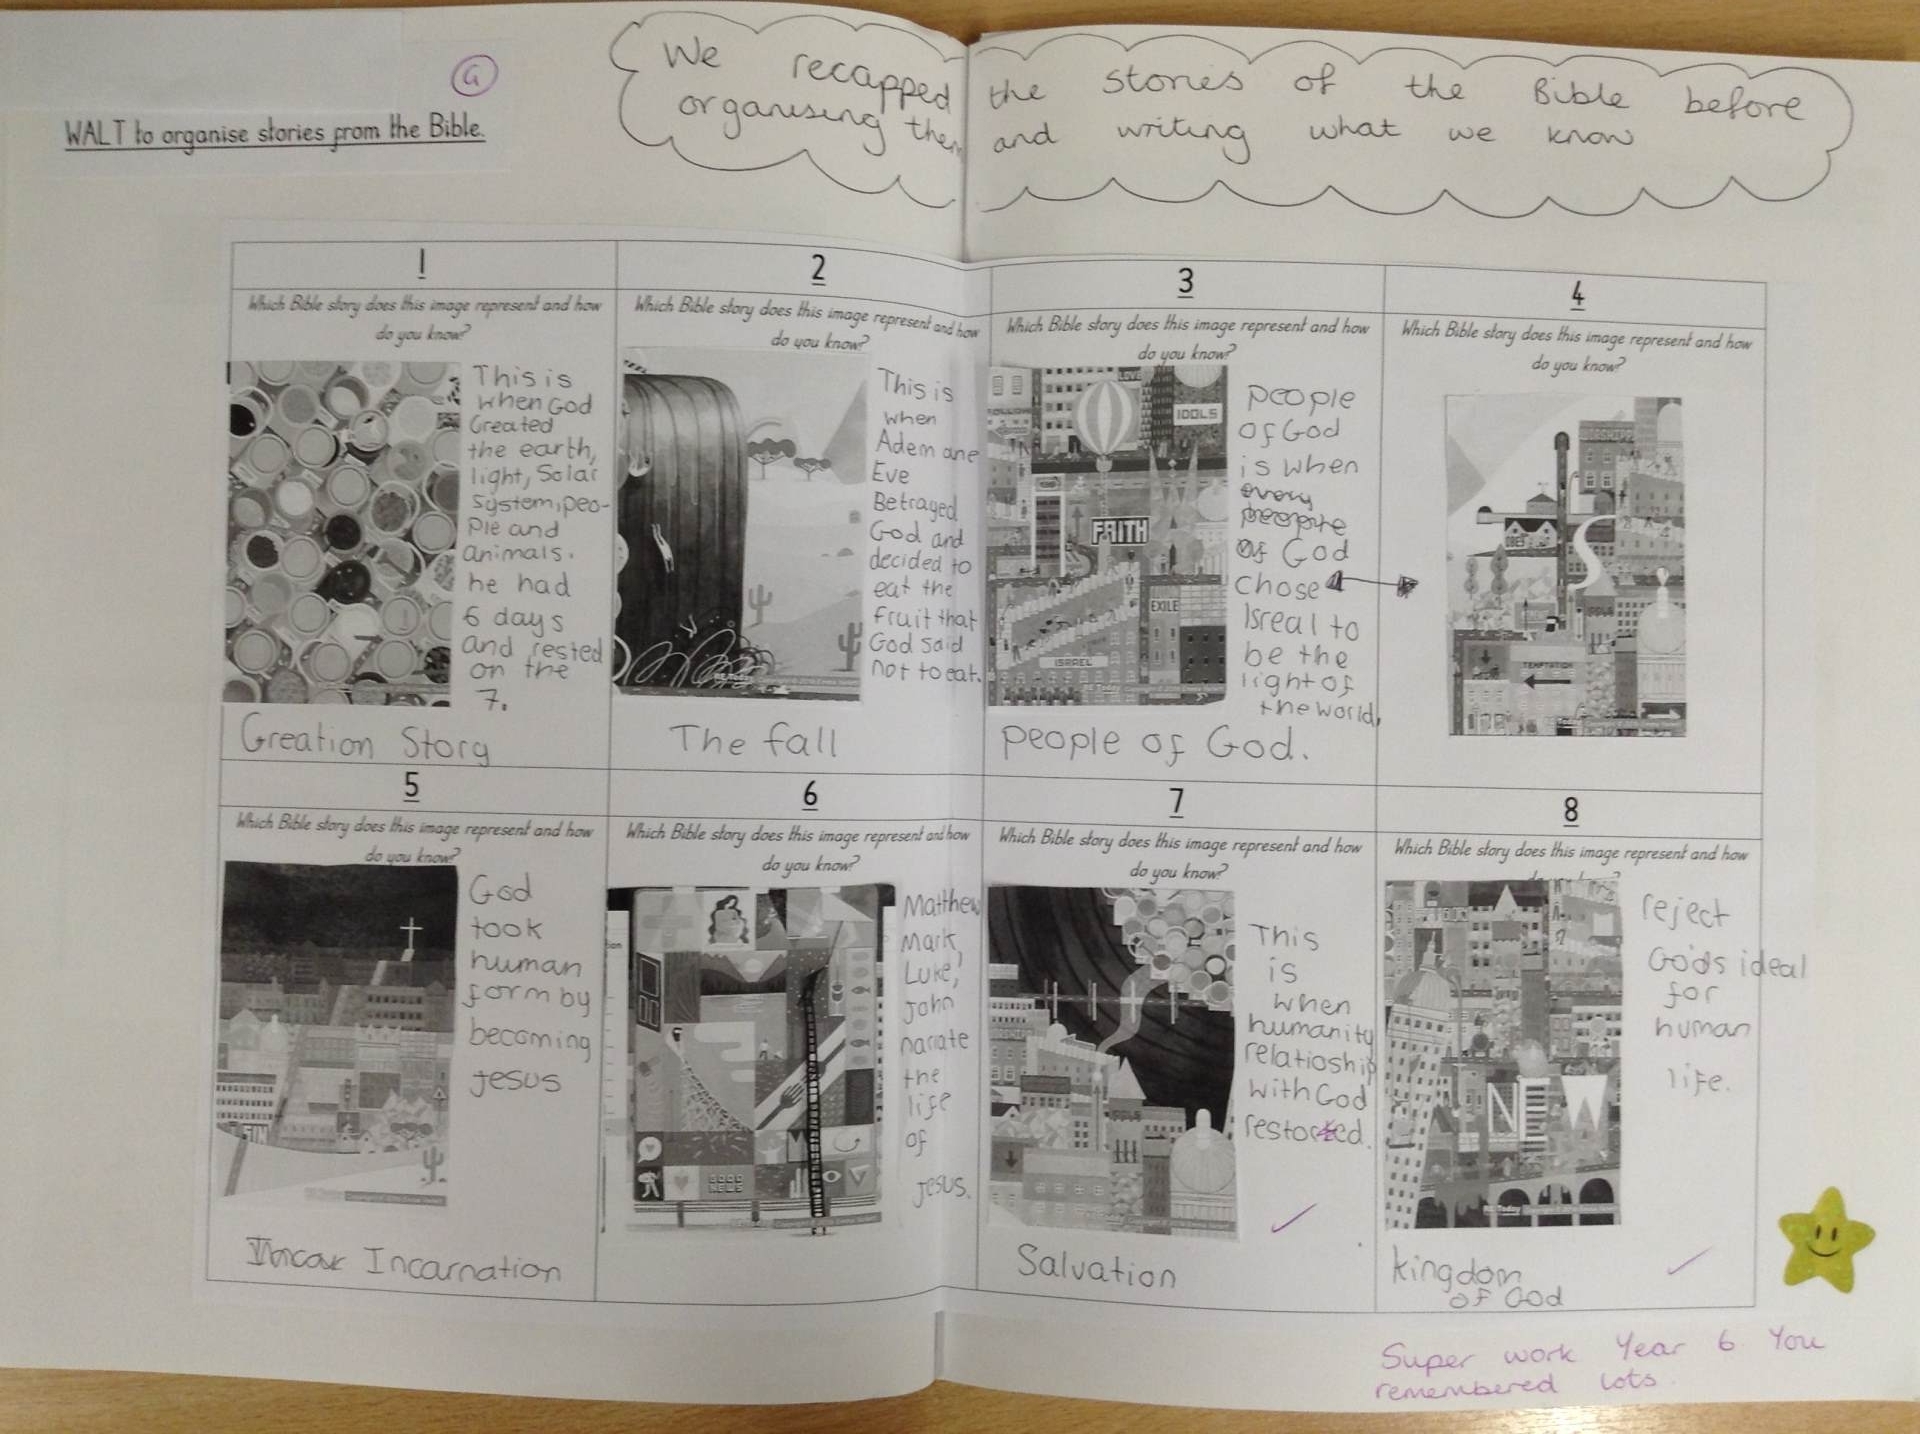 G
We recapped the stories of the Bible before
organising them and writing what we know
WALT to organise stories from the Bible.
1
Which Bible story does this image represent and how
do you know?
This is
when God
Created
the earth,
light, Solar
System, peo-
ple and
animals.
he had
6 days
and rested
on the
7.
Creation Story
2
Which Bible story does this image represent and how
do you know?
This is
when
Adem ane
Eve
Betrayed
God and
decided to
eat the
fruit that
God said
not to eat.
The fall
3
Which Bible story does this image represent and how
do you know?
LOVE
FOLLOW
IDOLS
FAITH
EXILE
ISRAEL
RE Today
people
of God
is when
every
people
of God
chose
Isreal to
be the
light of
the world.
people of God.
4
Which Bible story does this image represent and how
do you know?
OBEY
IDOLS
TEMPTATION
5
Which Bible story does this image represent and how
do you know?
SIN
God
took
human
form by
becoming
Jesus
Incar Incarnation
6
Which Bible story does this image represent and how
do you know?
GOOD
NEWS
Matthew
Mark,
Luke,
John
nariate
the
life
of
Jesus.
7
Which Bible story does this image represent and how
do you know?
IDOLS
This
is
when
humanity
relatioship
with God
restored.
Salvation
8
Which Bible story does this image represent and how
NEW
RE Today
reject
God's ideal
for
human
life.
kingdom
of God
Super work Year 6 You
remembered lots.